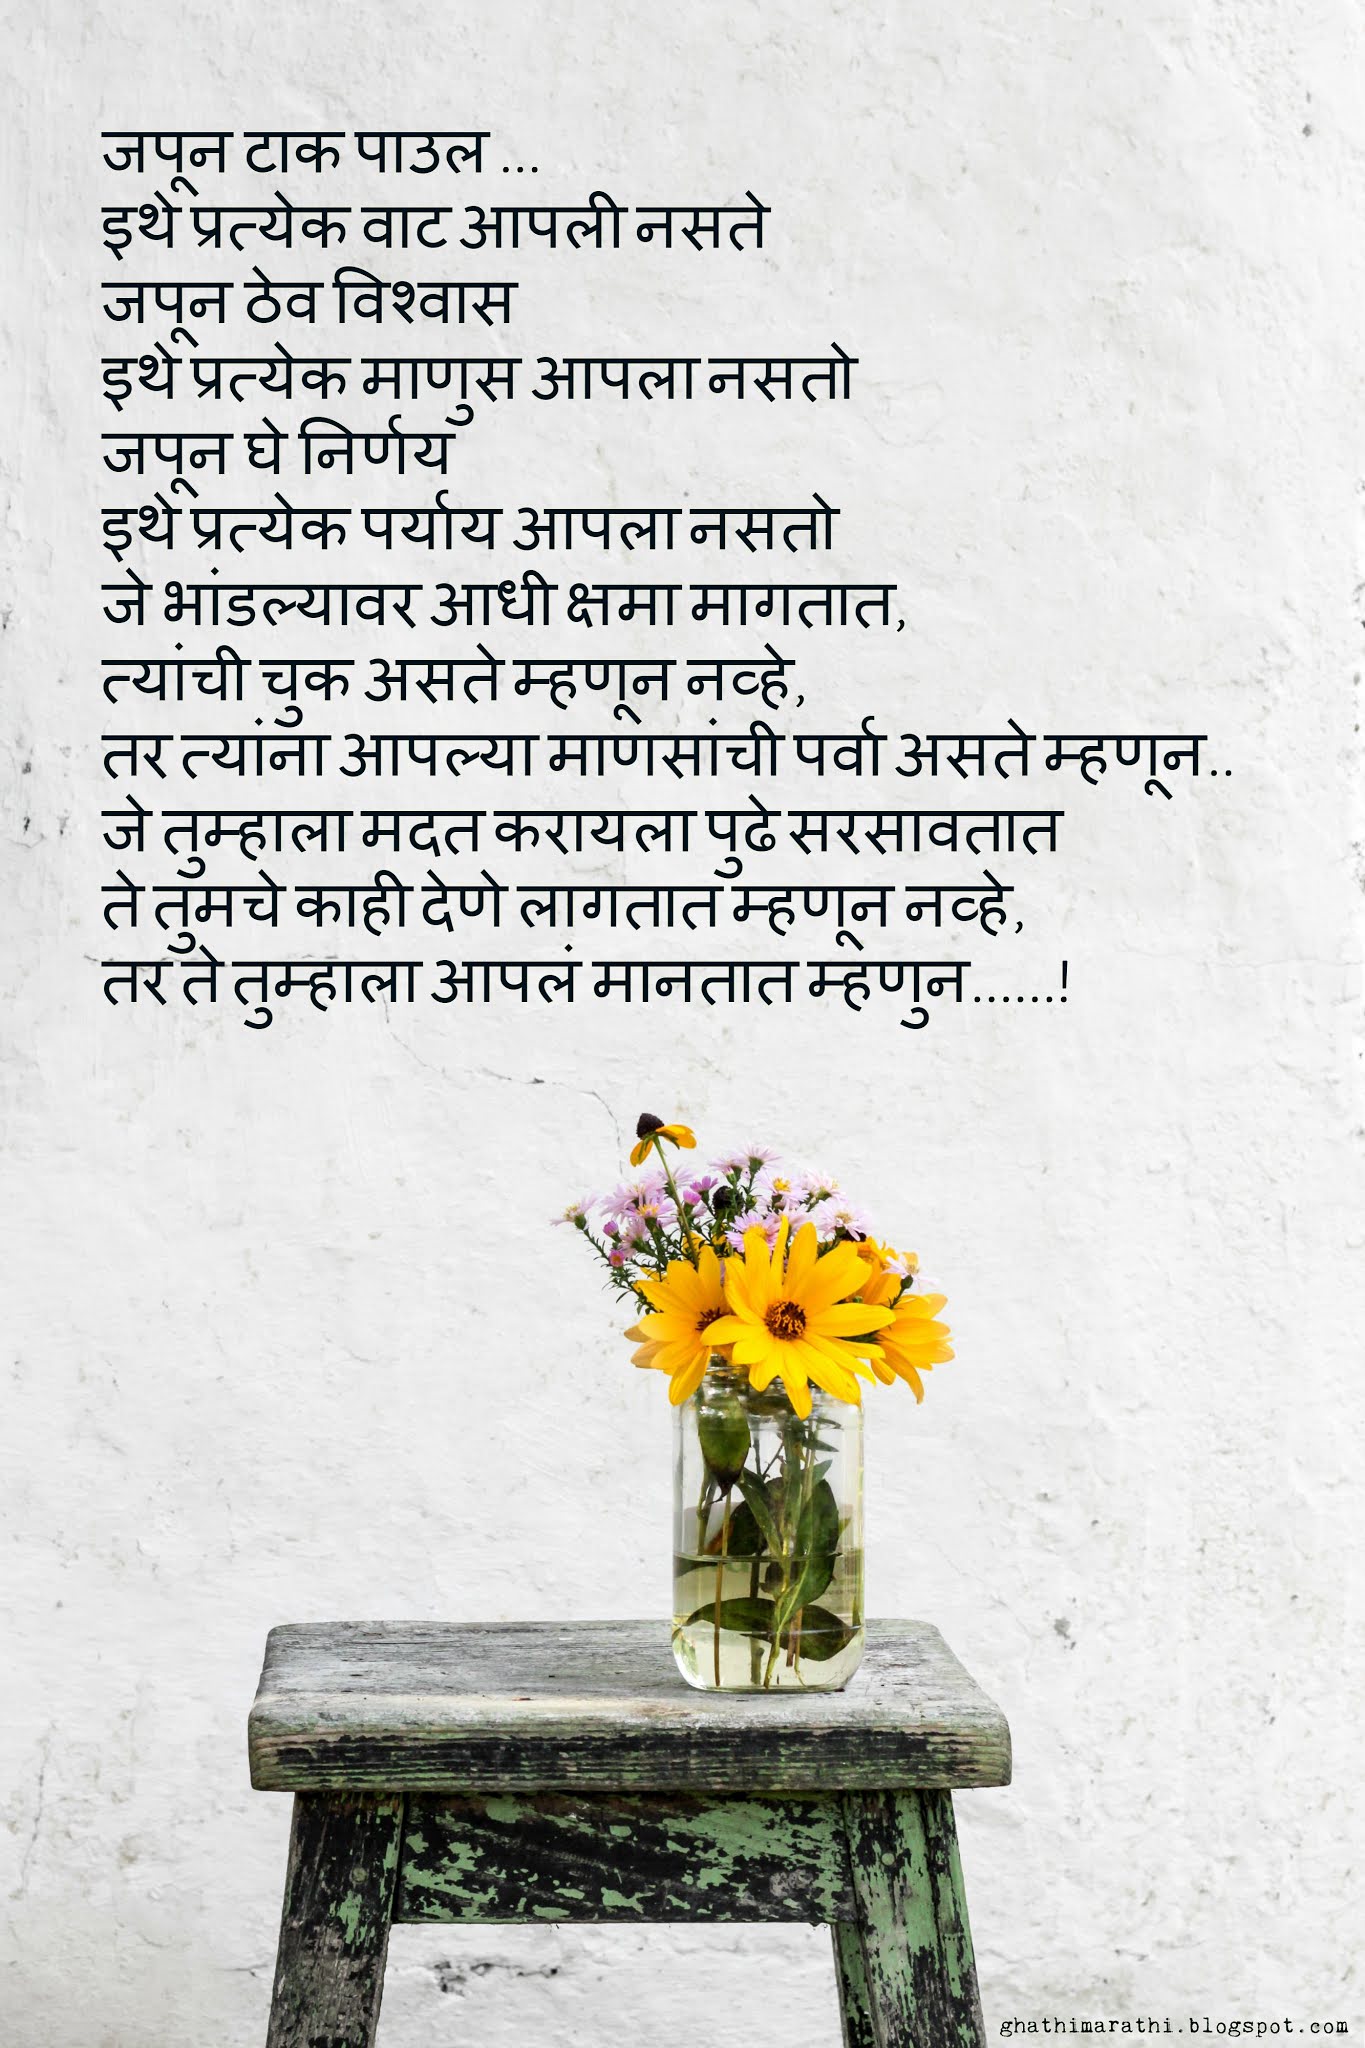 जपून टाक पाउल ...
इथे प्रत्येक वाट आपली नसते
जपून ठेव विश्वास
इथे प्रत्येक माणुस आपला नसतो
जपून घे निर्णय
इथे प्रत्येक पर्याय आपला नसतो
जे भांडल्यावर आधी क्षमा मागतात,
त्यांची चुक असते म्हणून नव्हे,
तर त्यांना आपल्या माणसांची पर्वा असते म्हणून..
जे तुम्हाला मदत करायला पुढे सरसावतात
ते तुमचे काही देणे लागतात म्हणून नव्हे,
तर ते तुम्हाला आपलं मानतात म्हणुन......!
ghathimarathi.blogspot.com